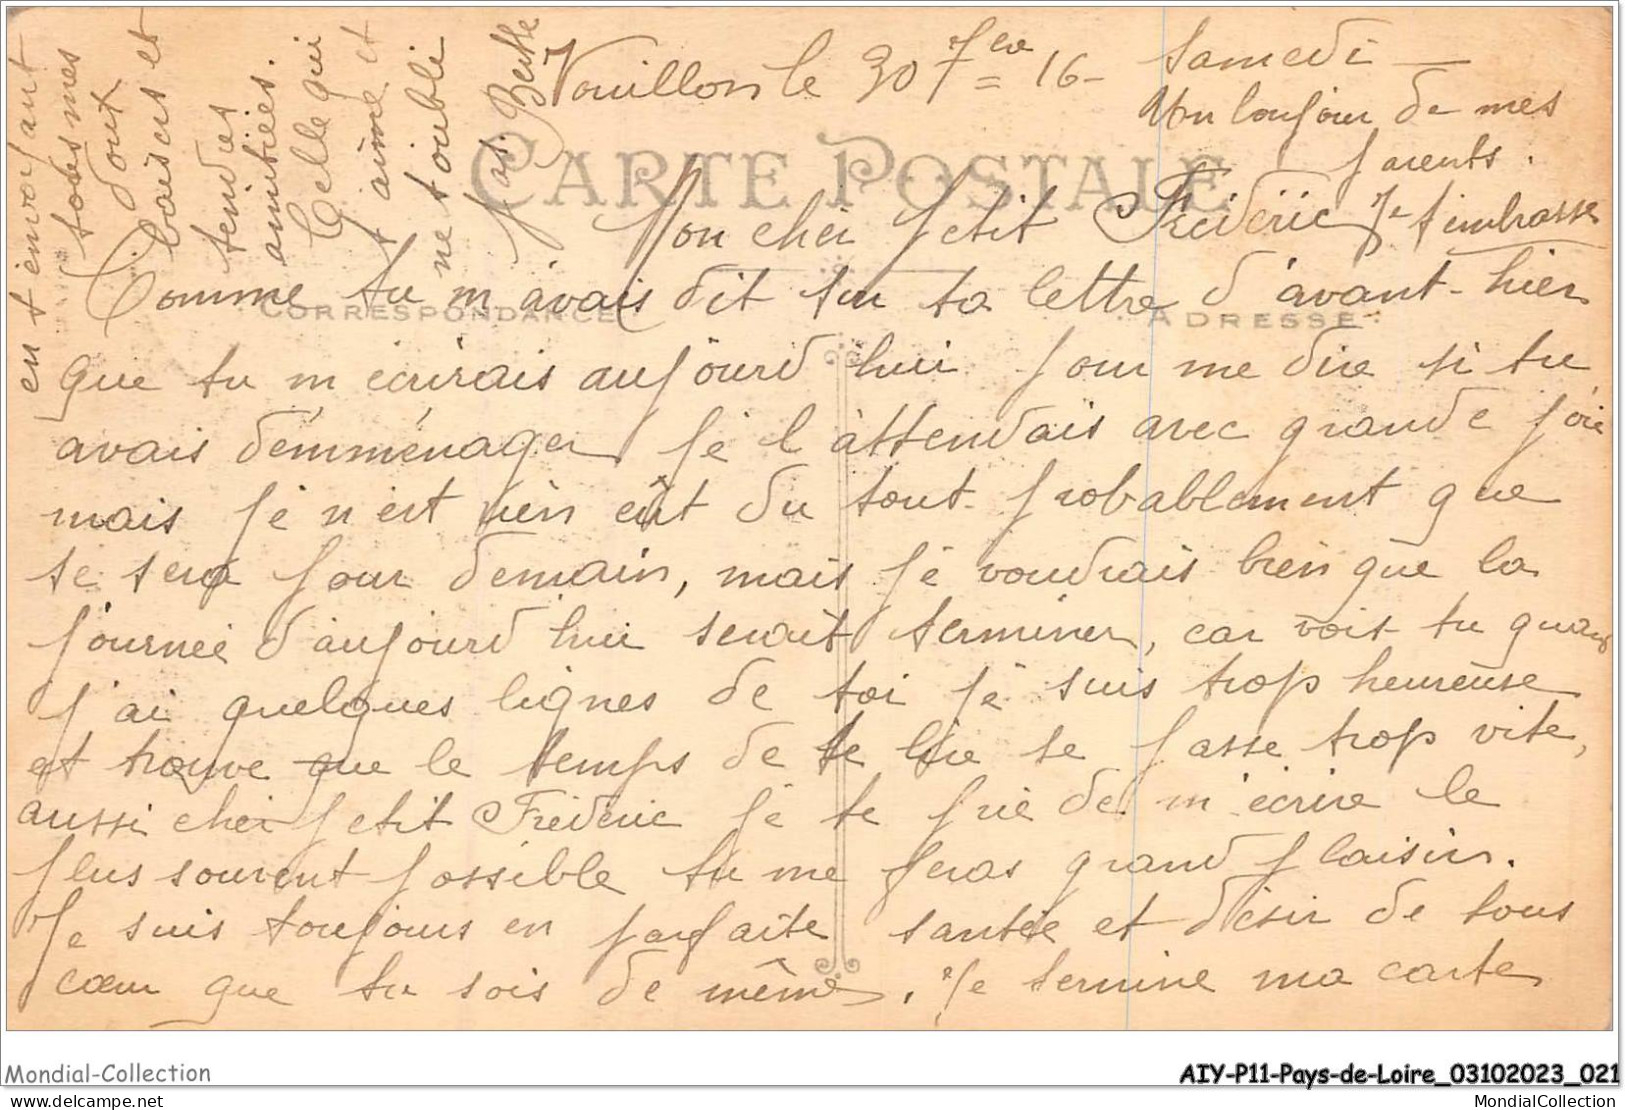 Vouillon le 30 7bre 16 - Samedi -
Un bonjour de mes
parents.
CARTE POSTALE
Mon cher petit Frédéric Je t'embrasse
CORRESPONDANCE
ADRESSE
Comme tu m'avais dit sur ta lettre d'avant-hier
que tu m'écrirais aujourd'hui pour me dire si tu
avais démménager je l'attendais avec grande joie
mais je n'est rien eût du tout probablement que
se sera pour demain, mais je voudrais bien que la
journée d'aujourd'hui serait terminer, car vois tu quand
j'ai quelques lignes de toi je suis trop heureuse
et trouve que le temps de te lire se passe trop vite,
aussi cher petit Frédéric je te prie de m'écrire le
plus souvent possible tu me feras grand plaisir.
Je suis toujours en parfaite santée et désir de tous
cœur que tu sois de même. Je termine ma carte
en t'envoyant
toutes mes
doux
baisers et
tendres
amitiées.
Celle qui
t'aime et
ne t'oubli
pas. Berthe
Mondial-Collection
AIY-P11-Pays-de-Loire_03102023_021
delcampe.net
MondialCollection